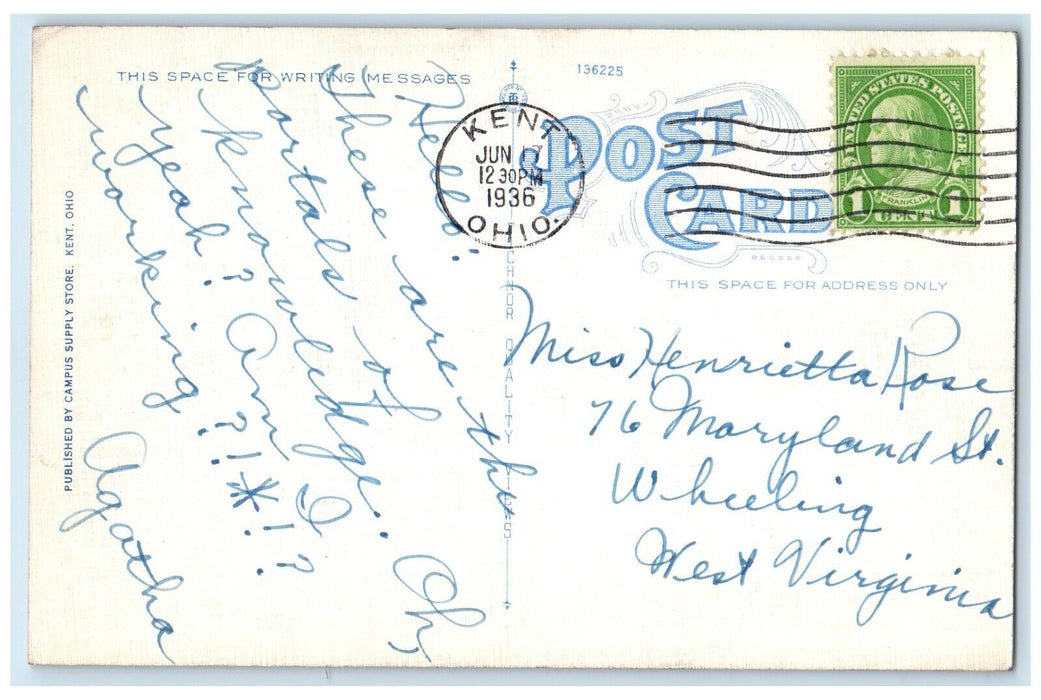 THIS SPACE FOR WRITING MESSAGES
136225
POST CARD
KENT
JUN 17
12 30 PM
1936
OHIO.
UNITED STATES POSTAGE
FRANKLIN
1 1
THIS SPACE FOR ADDRESS ONLY
PUBLISHED BY CAMPUS SUPPLY STORE, KENT, OHIO
CHNOR QUALITY VIEWS
Hello!
These are the
portals of
knowledge. Oh
yeah? Am I
working! ?!*!?
Agatha
Miss Henrietta Rose
76 Maryland St.
Wheeling
West Virginia